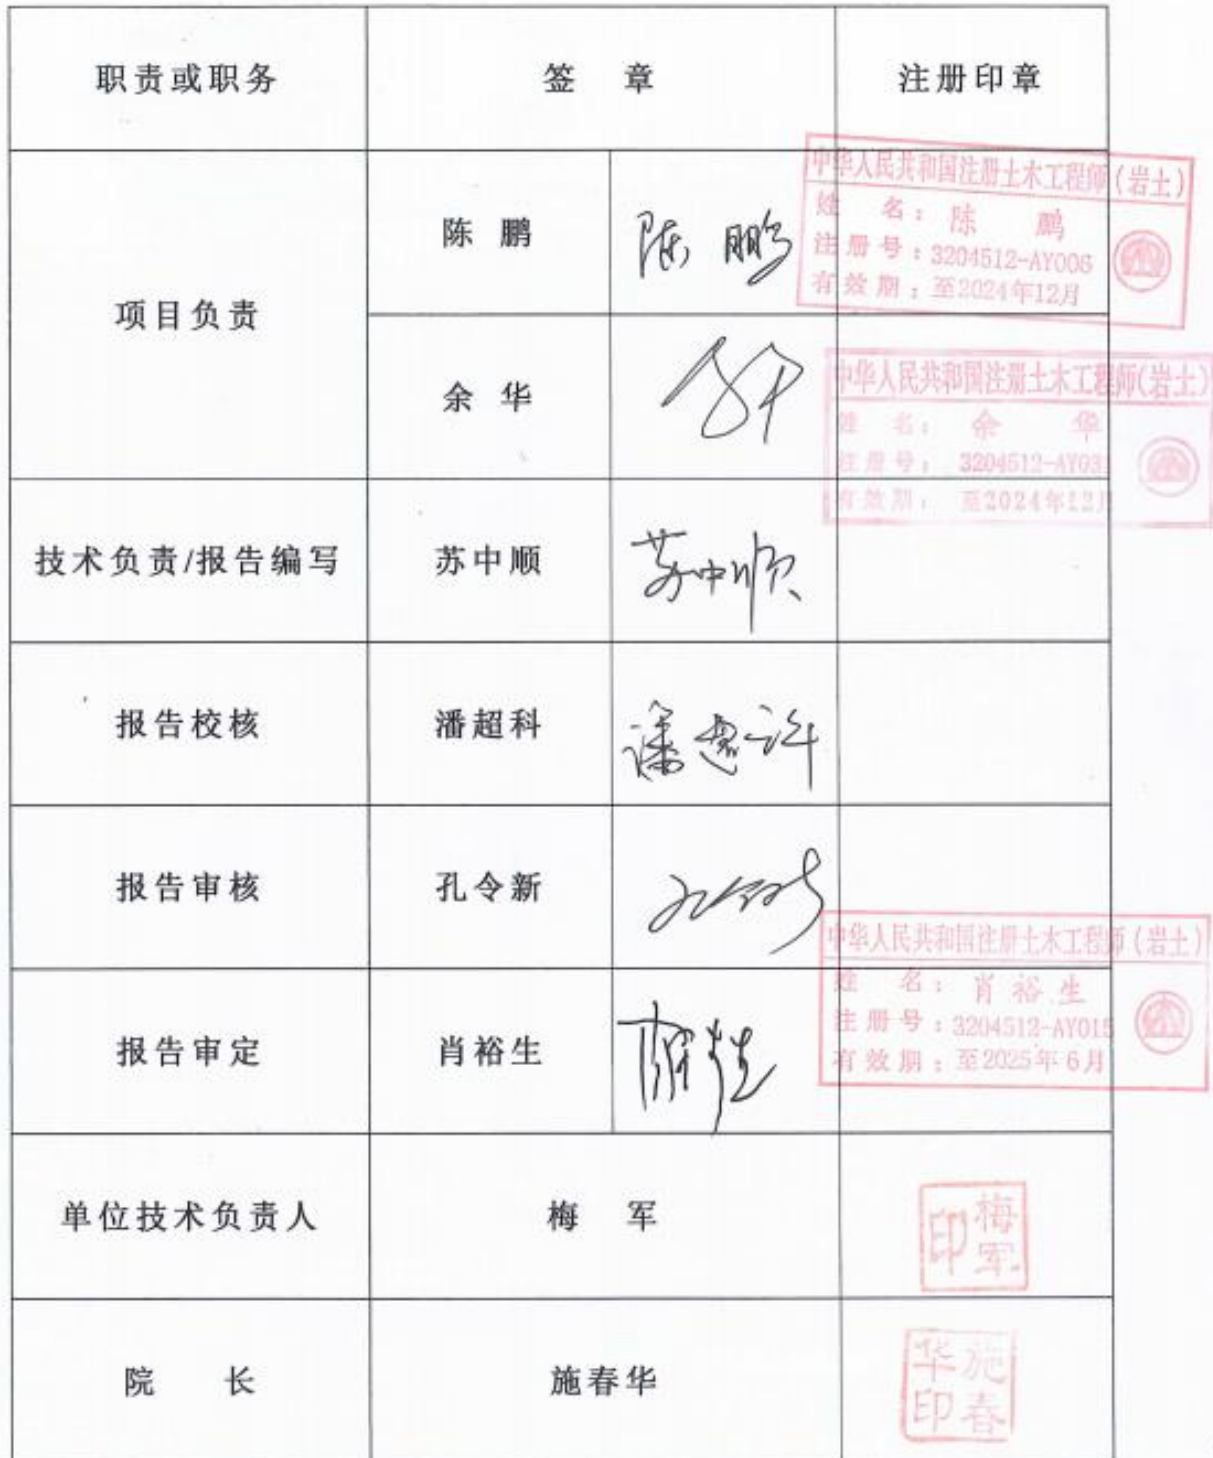 职责或职务 签 章 注册印章
项目负责
陈 鹏 陈 鹏
中华人民共和国注册土木工程师(岩土)
姓 名: 陈 鹏
注册号:3204512-AY006
有效期:至2024年12月
余 华 余华
中华人民共和国注册土木工程师(岩土)
姓 名: 余 华
注册号: 3204512-AY031
有效期: 至2024年12月
技术负责/报告编写 苏中顺 苏中顺
报告校核 潘超科
报告审核 孔令新 孔令新
报告审定 肖裕生
中华人民共和国注册土木工程师(岩土)
姓 名: 肖裕生
注册号:3204512-AY015
有效期:至2025年6月
单位技术负责人 梅 军
梅军印
院 长 施春华
施春华印